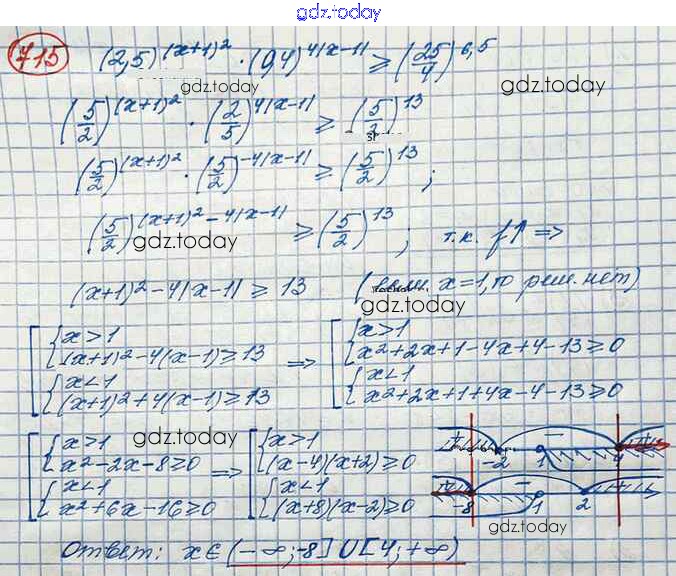 gdz.today
715 (2,5)^(x+1)² · (0,4)^4|x-1| ≥ (25/4)^6,5
gdz.today gdz.today
(5/2)^(x+1)² · (2/5)^4|x-1| ≥ (5/2)^13
(5/2)^(x+1)² · (5/2)^-4|x-1| ≥ (5/2)^13 ;
(5/2)^(x+1)²-4|x-1| ≥ (5/2)^13 ; т.к. f↑ ⇒
gdz.today
(x+1)²-4|x-1| ≥ 13 (если x=1, то реш. нет)
gdz.today
[ { x>1 ⇒ [ { x>1
(x+1)²-4(x-1)≥13 x²+2x+1-4x+4-13≥0
{ x<1 { x<1
(x+1)²+4(x-1)≥13 x²+2x+1+4x-4-13≥0
gdz.today
[ { x>1 ⇒ [ { x>1 + -2 1 - 4 +
x²-2x-8≥0 (x-4)(x+2)≥0
{ x<1 { x<1 + -8 1 - 2 +
x²+6x-16≥0 (x+8)(x-2)≥0
gdz.today
Ответ: x∈(-∞;-8]∪[4;+∞)